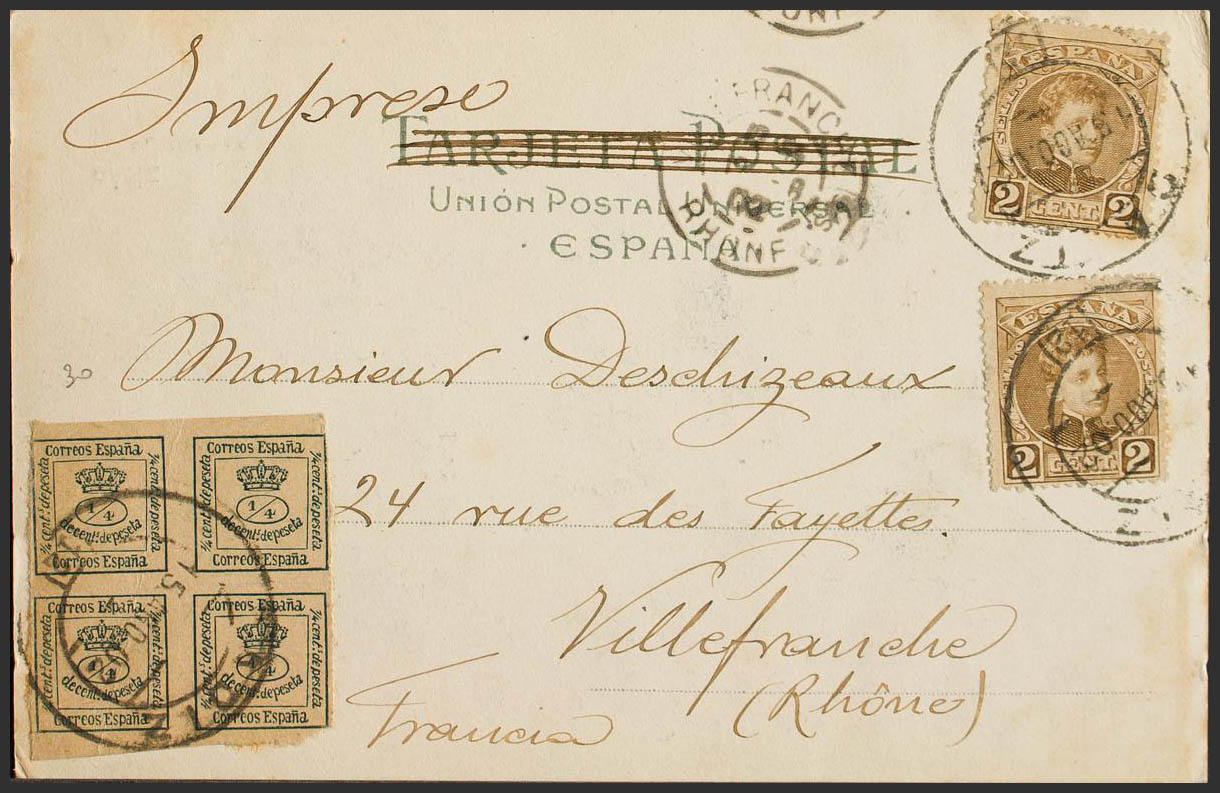 Impreso
TARJETA POSTAL
UNIÓN POSTAL UNIVERSAL
ESPAÑA
RHONE
FRANCH
RHONE
ESPAÑA
SELLO
2 CENT 2
ESPAÑA
SELLO POSTAL
2 CENT 2
30
Monsieur Deschizeaux
24 rue des Fayettes
Villefranche
(Rhône)
Francia
Correos España
¼ cent.º de peseta
1/4
de cent.º de peseta
¼ cent.º de peseta
Correos España
Correos España
¼ cent.º de peseta
1/4
de cent.º de peseta
¼ cent.º de peseta
Correos España
Correos España
¼ cent.º de peseta
1/4
de cent.º de peseta
¼ cent.º de peseta
Correos España
Correos España
¼ cent.º de peseta
1/4
de cent.º de peseta
¼ cent.º de peseta
Correos España